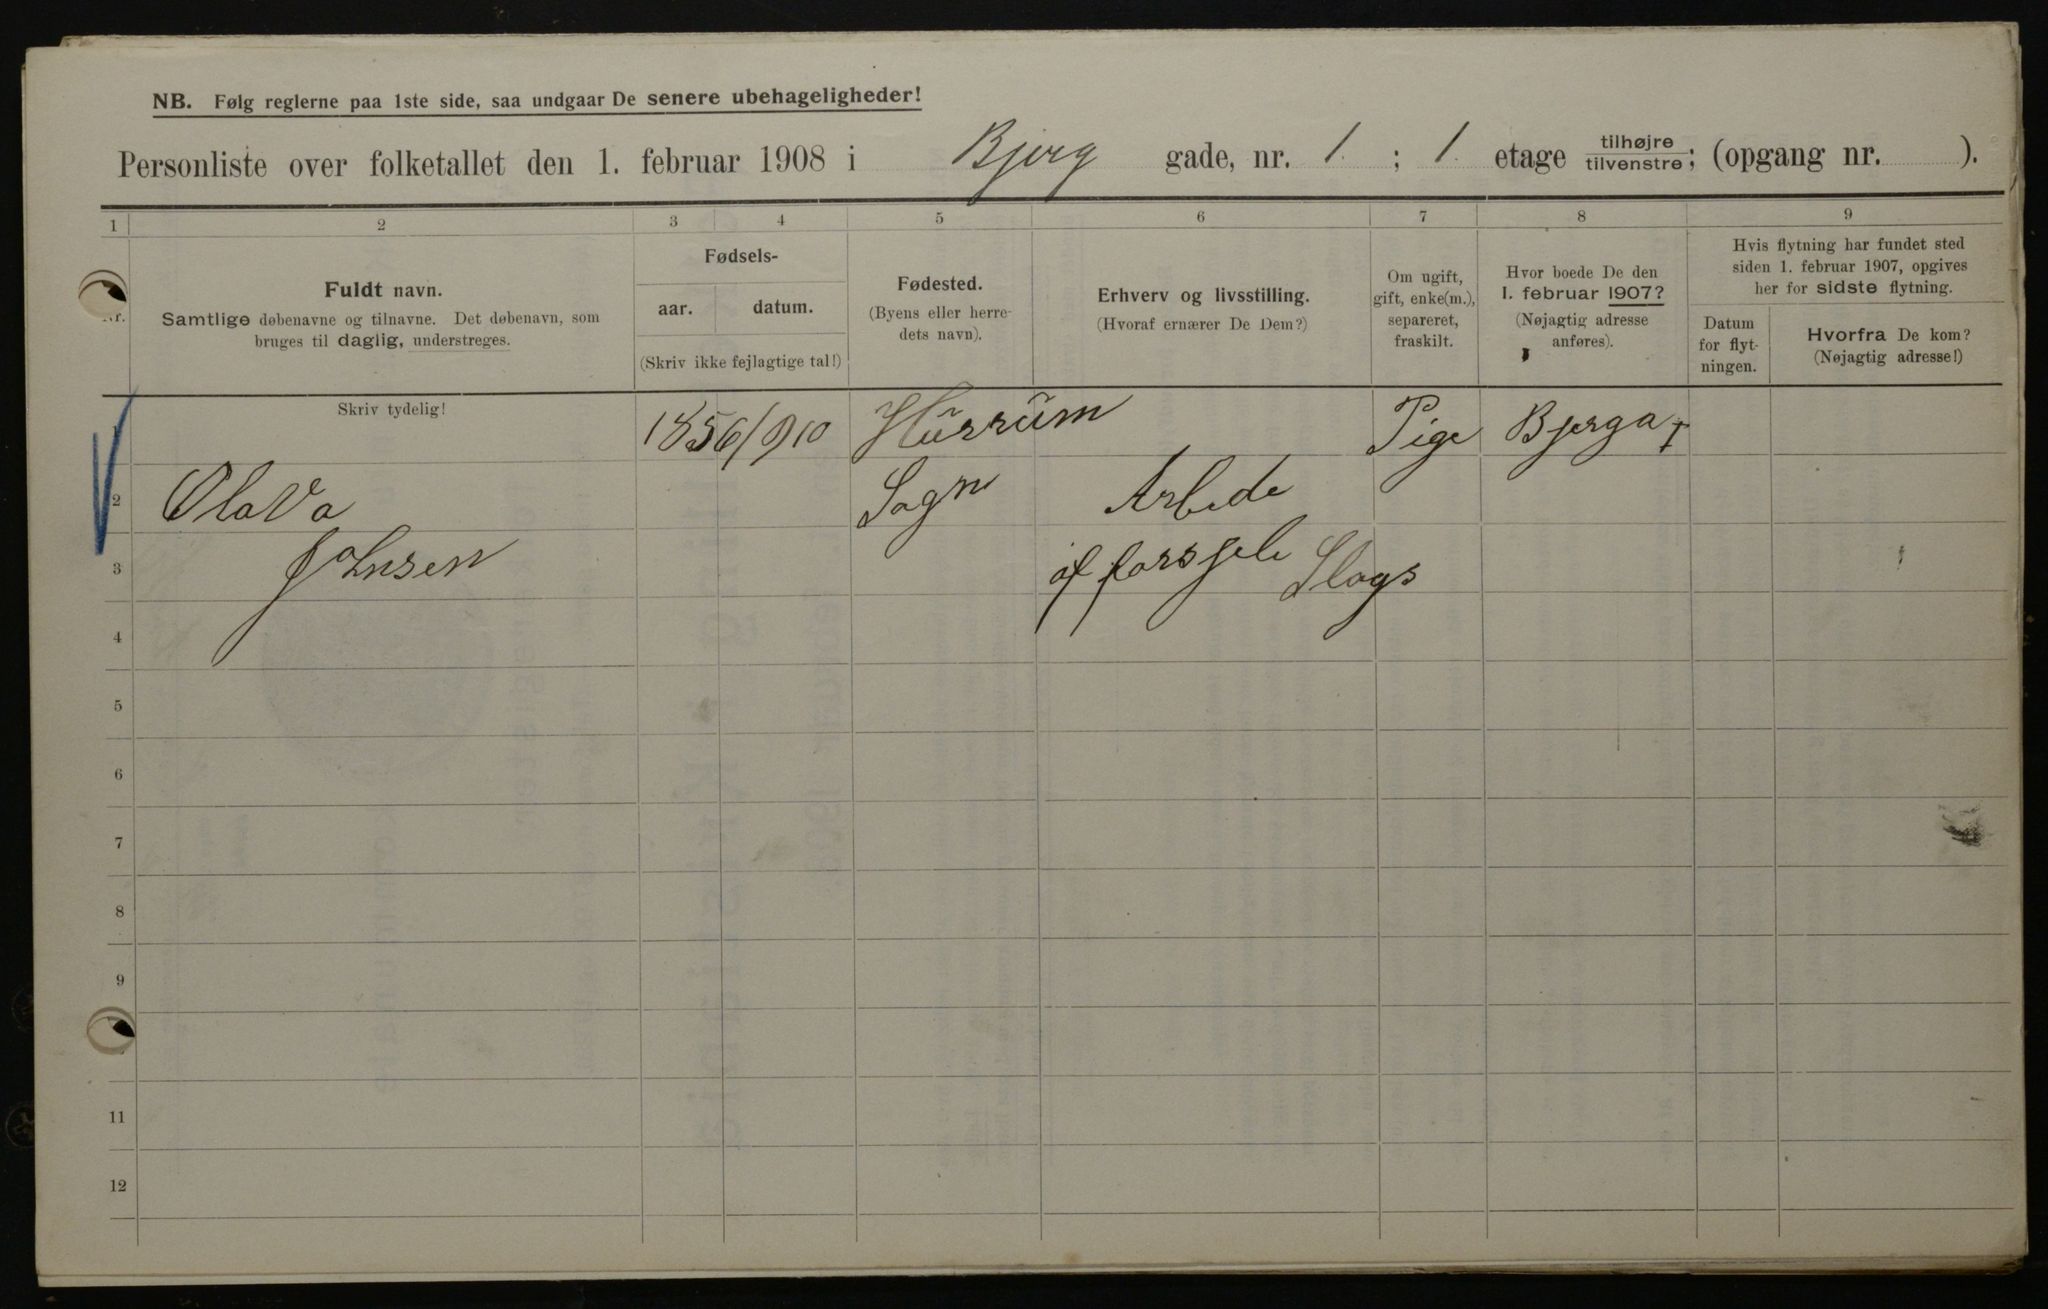 NB. Følg reglerne paa 1ste side, saa undgaar De senere ubehageligheder!
Personliste over folketallet den 1. februar 1908 i Bjerg gade, nr. 1 ; 1 etage tilhøjre tilvenstre; (opgang nr. ).
1 2 3 4 5 6 7 8 9
Nr.
Fuldt navn.
Samtlige døbenavne og tilnavne. Det døbenavn, som
bruges til daglig, understreges.
Fødsels-
aar. datum.
(Skriv ikke fejlagtige tal!)
Fødested.
(Byens eller herre-
dets navn).
Erhverv og livsstilling.
(Hvoraf ernærer De Dem?)
Om ugift,
gift, enke(m.),
separeret,
fraskilt.
Hvor boede De den
1. februar 1907?
(Nøjagtig adresse
anføres).
Hvis flytning har fundet sted
siden 1. februar 1907, opgives
her for sidste flytning.
Datum
for flyt-
ningen.
Hvorfra De kom?
(Nøjagtig adresse!)
Skriv tydelig!
1 1856/9 10 Hurrum Pige Bjerga 1
2 Olava Sogn Arbede
3 Johnsen af forsjele Slags
4
5
6
7
8
9
11
12